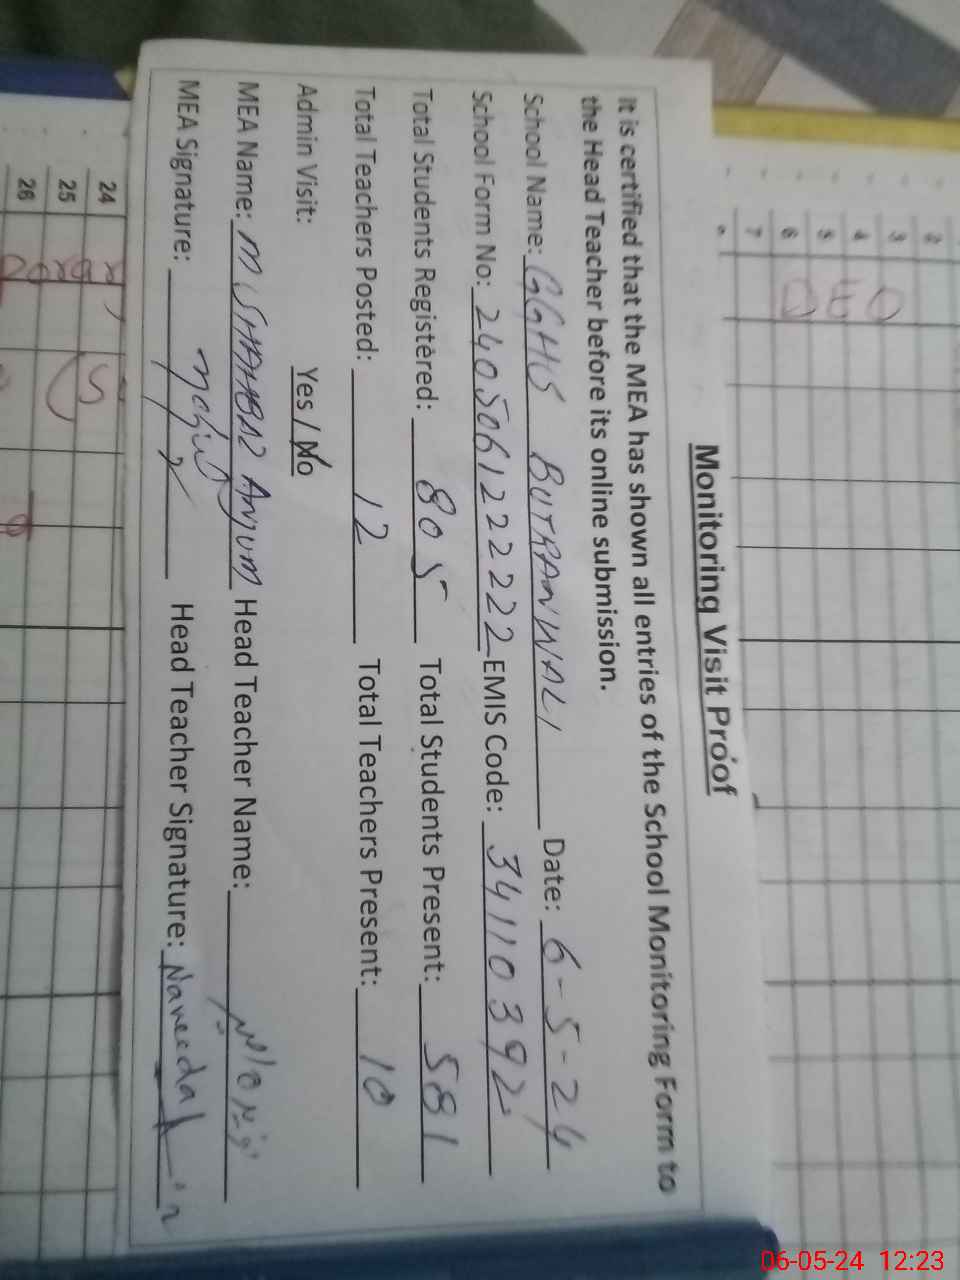 Monitoring Visit Proof
It is certified that the MEA has shown all entries of the School Monitoring Form to
the Head Teacher before its online submission.
School Name: GGHS BUTRANWALI Date: 6-5-24
School Form No: 24050612222222 EMIS Code: 34110392
Total Students Registered: 805 Total Students Present: 581
Total Teachers Posted: 12 Total Teachers Present: 10
Admin Visit: Yes / No
MEA Name: M SHAHBAZ ANJUM Head Teacher Name:
MEA Signature: Head Teacher Signature:
2
3
4
5
6
7
24
25
26
06-05-24 12:23